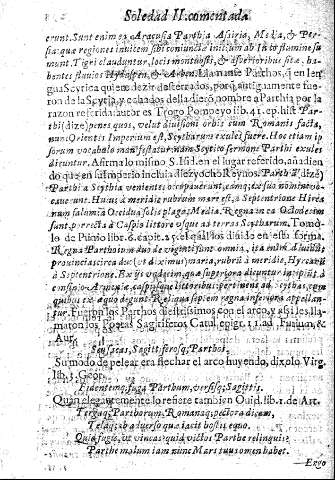 Soledad II. comentada
erunt. Sunt enim ex Aracusia Parthia Assiria, Media, & Per-
sia: quæ regiones invicem sibi coniunctæ initium ab Indo flumine su-
munt. Tigri clauduntur, locis montuosis, & asperioribus sitæ, ha-
bentes fluvios Hydaspem, & Arbem. Llamanse Parthos, q̃ en len-
gua Scytica quiere dezir desterrados, porq̃ antiguamente fue-
ron de la Scytia, y echados della dieron nombre a Parthia por la
razon referida: autor es Trogo Pompeyo lib. 41. ep. hist. Par-
thi (dize) penes quos, velut divisione orbis cum Romanis facta,
nunc Orientis Imperium est, Scytharum exules fuere. Hoc etiam ip-
sorum vocabulo manifestatur nam Scytico sermone Parthi exules
dicuntur. Afirma lo mismo S. Isid. en el lugar referido, añadien
do que en su imperio incluia diez y ocho Reynos. Parthi (dize)
Parthi a Scythia venientes occupaverunt, eamq; ex suo nomine vo-
cauerunt. Huius à meridie rubrum mare est, à Septentrione Hirca
num salum: ab Occidua solis plaga Media. Regna in ea octodecim
sunt porrecta à Caspio littore usque ad terras Scytharum. Tomo-
lo de Plinio lib. 6. capit. 25. el qual los dividio en esta forma.
Regna Parthorum duo de viginti sunt omnia, ita enim dividunt
provincias circa duo (ut diximus) maria, rubrū à meridie, Hyrcanū
à Septentrione. Ex ijs undecim, quæ superiora dicuntur incipiūt à
confinio Armeniæ, caspijsque littoribus: pertinent ad Scythas, cum
quibus ex æquo degunt. Reliqua septem regna inferiora appellan-
tur. Fueron los Parthos diestrissimos con el arco, y assi les lla-
maron los Poetas Sagitiferos Catul. epigr. 11. ad Furium, &
Aur.
Seu Sacas, Sagittiferosq; Parthos,
Su modo de pelear era flechar el arco huyendo, dixolo Virg.
lib. 3. Geor.
Fidentemq; fuga Parthum, versisq; Sagittis.
Quan elegantemente lo refiere tambien Ouid. lib. 1. de Art.
Tergaq; Parthorum, Romanaq; pectora dicam,
Telaq; ab adverso quæ iacit hostis equo.
Qui fugis, ut vincas, quid victor Parthe relinquis
Parthe malum iam nunc Mars tuus omen habet.
—Ergo